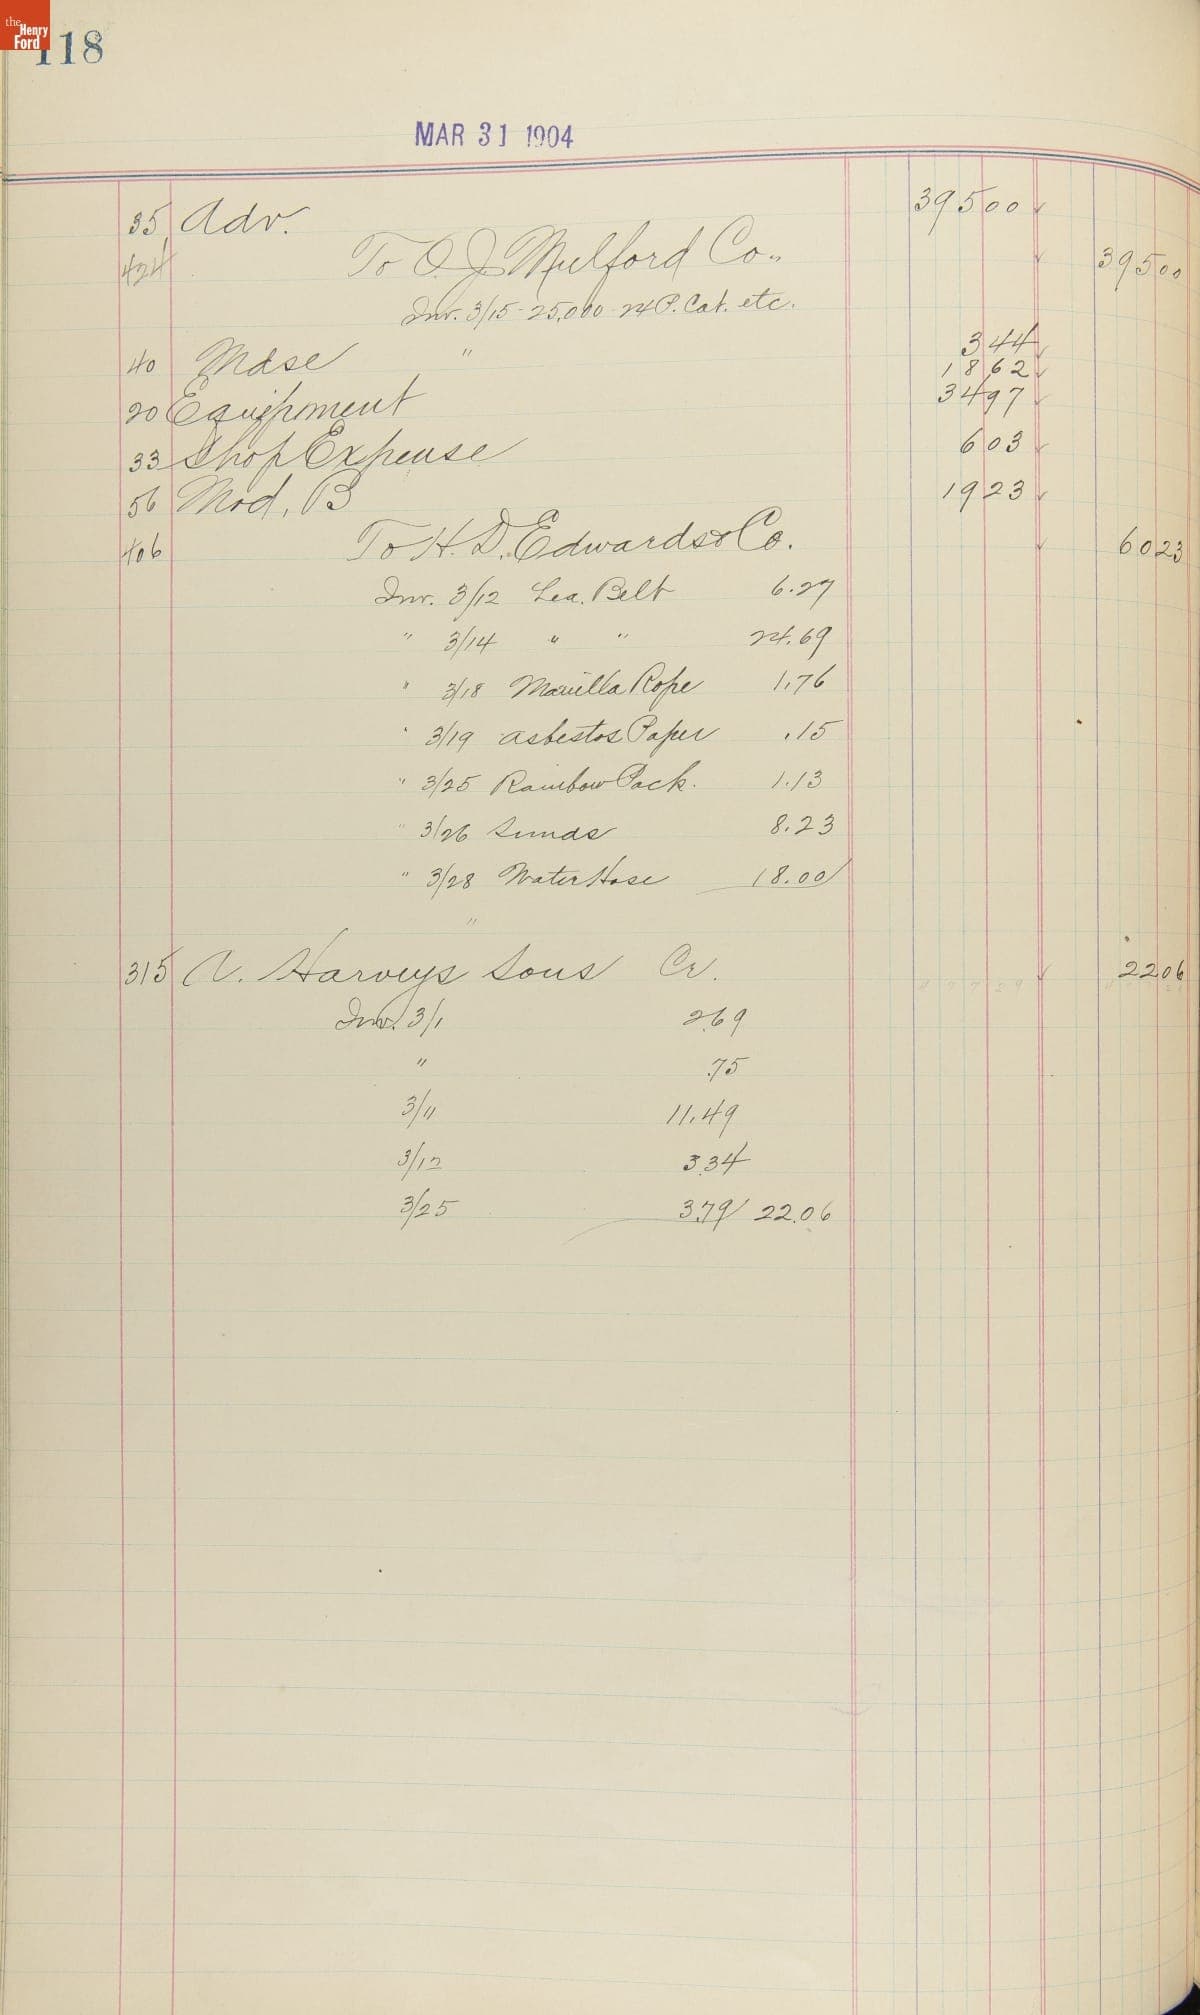 the Henry Ford
118
MAR 31 1904
35 Adv. 395 00
424 To O. J. Mulford Co. 395 00
Inv. 3/15 - 25,000 - 24 P. Cat. etc.
"
40 Mdse 3 44
18 62
20 Equipment 34 97
33 Shop Expense 6 03
56 Mod. B 19 23
406 To H. D. Edwards & Co. 60 23
Inv. 3/12 Lea. Belt 6.27
" 3/14 " " 24.69
" 3/18 Manilla Rope 1.76
" 3/19 Asbestos Paper .15
" 3/25 Rainbow Pack. 1.13
" 3/26 Sunds 8.23
" 3/28 Water Hose 18.00
"
315 A. Harveys Sons Cr. 22 06
Inv. 3/1 2.69
" .75
3/11 11.49
3/12 3.34
3/25 3.79 22.06